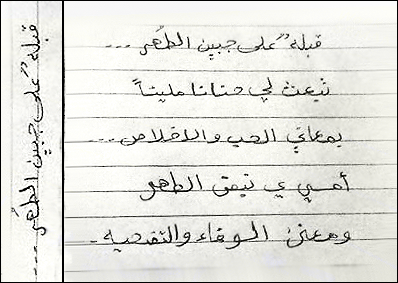 قبلة" على جبين الطهر ...
تبعث لي حنانا مليئاً
بمعاني الحب والاخلاص ...
أمي ي نبض الطهر
ومعنى الوفاء والتضحيه .
قبلة" على جبين الطهر ...